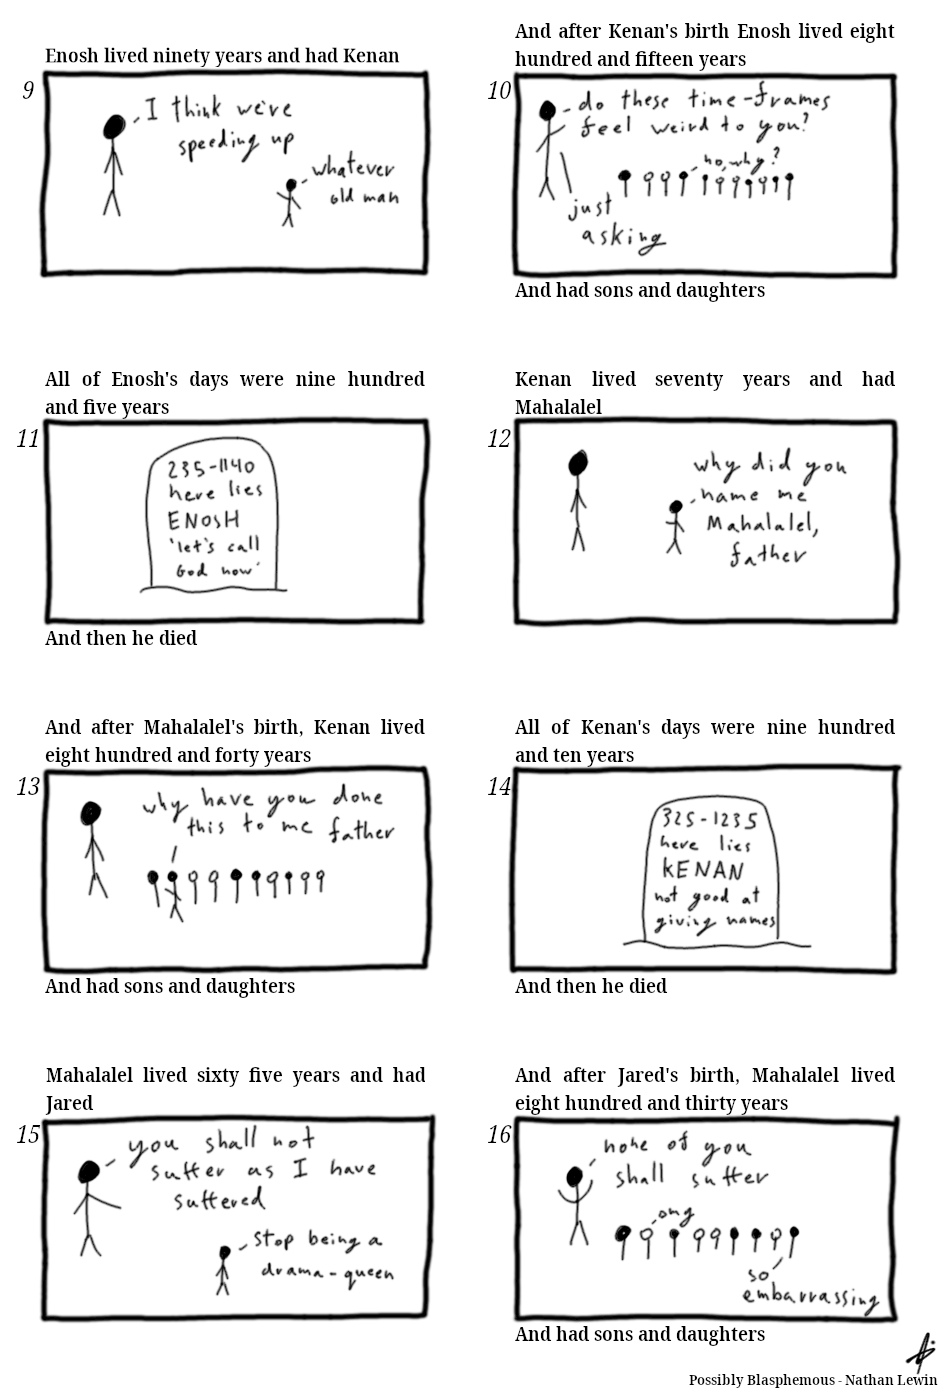 Enosh lived ninety years and had Kenan
9
I think we're
speeding up
whatever
old man
And after Kenan's birth Enosh lived eight
hundred and fifteen years
10
do these time-frames
feel weird to you?
no, why?
just
asking
And had sons and daughters
All of Enosh's days were nine hundred
and five years
11
235-1140
here lies
ENOSH
'let's call
God now'
And then he died
Kenan lived seventy years and had
Mahalalel
12
why did you
name me
Mahalalel,
father
And after Mahalalel's birth, Kenan lived
eight hundred and forty years
13
why have you done
this to me father
And had sons and daughters
All of Kenan's days were nine hundred
and ten years
14
325-1235
here lies
KENAN
not good at
giving names
And then he died
Mahalalel lived sixty five years and had
Jared
15
you shall not
suffer as I have
suffered
stop being a
drama-queen
And after Jared's birth, Mahalalel lived
eight hundred and thirty years
16
none of you
shall suffer
omg
so
embarrassing
And had sons and daughters
Possibly Blasphemous - Nathan Lewin